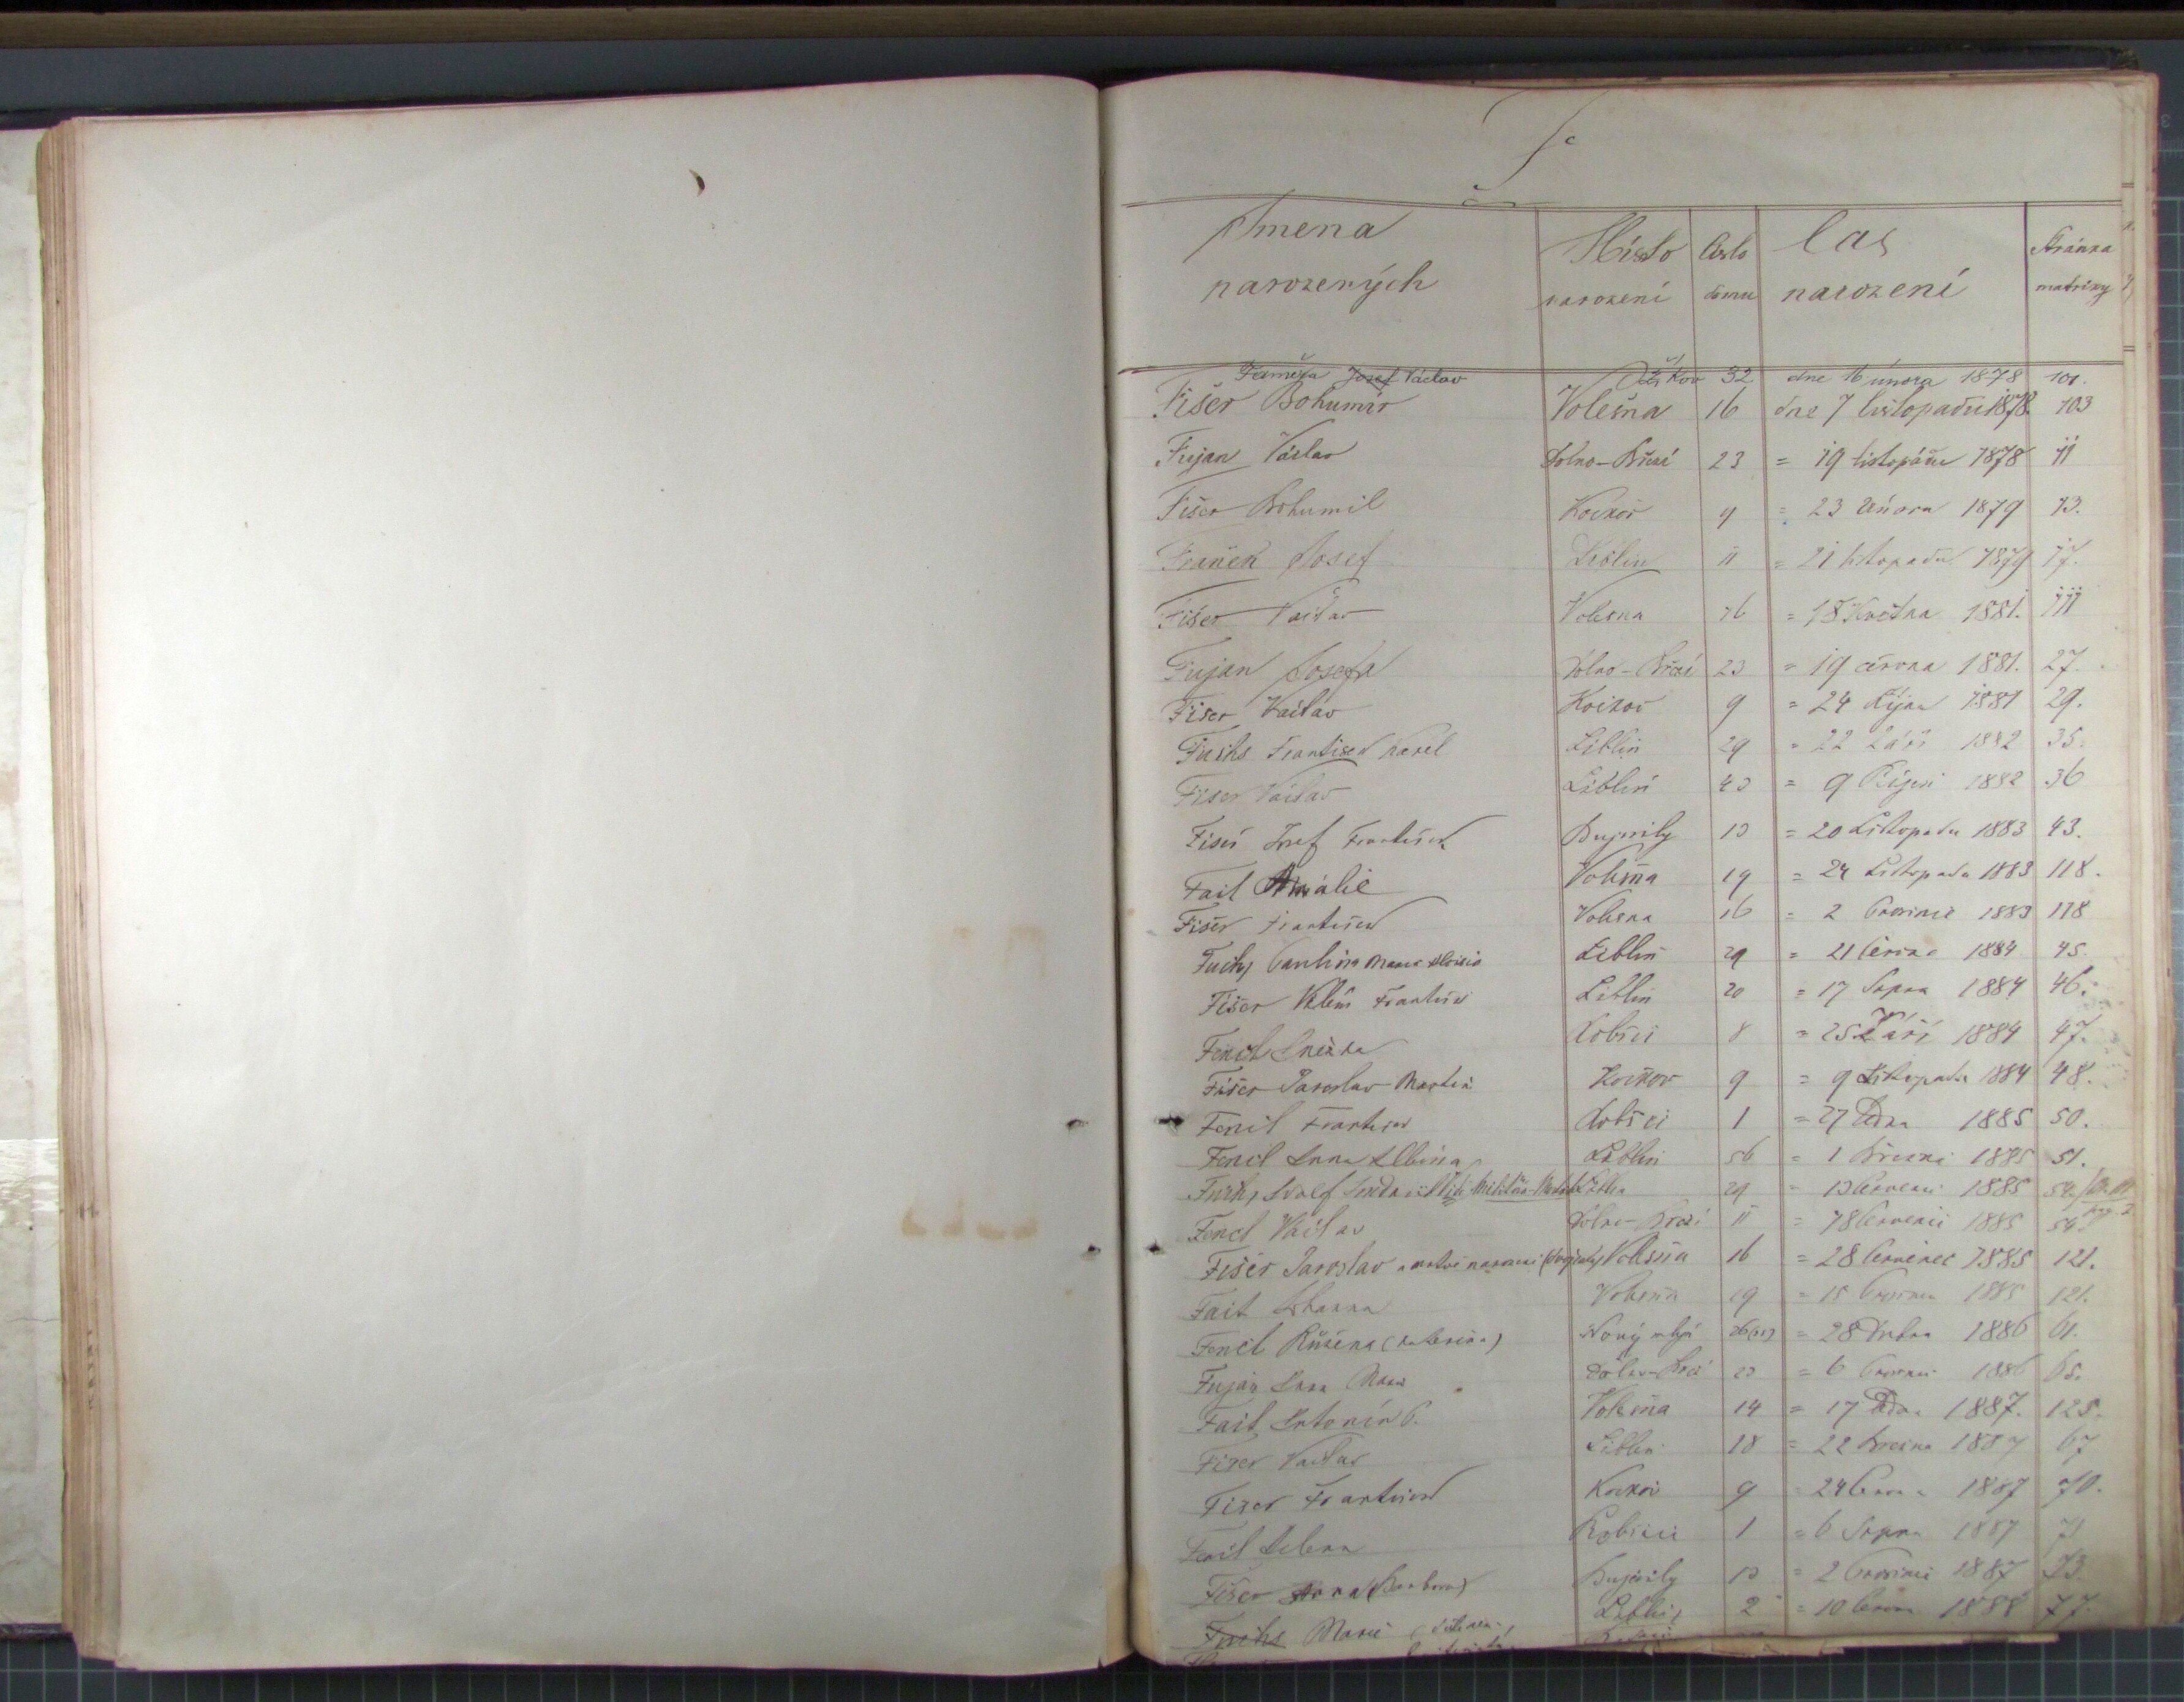 F
Jmena narozených Místo narození Číslo domu Čas narození Stránka matriky
Faměra Josef Václav 32 dne 16 února 1878 101.
Fišer Bohumír Volešna 16 dne 7 listopadu 1878 103
Fujan Václav Dolno-Březí 23 = 19 listopadu 1878 11
Fišer Bohumil Kočkov 9 = 23 Února 1879 13.
Franěk Josef Liblin 11 = 21 listopadu 1879 17.
Fišer Václav Volesna 16 = 18 Května 1881. 111
Fujan Josefa Dolno-Březí 23 = 19 června 1881. 27.
Fiser Václav Kočkov 9 = 24 Října 1881 29.
Fuchs František Karel Liblin 29 = 22 Září 1882 35.
Fiser Václav Liblin 43 = 9 Říjen 1882 36
Fiser Josef František Bujesily 13 = 20 Listopadu 1883 43.
Fait Amálie Volešna 19 = 24 Listopadu 1883 118.
Fišer František Volesna 16 = 2 Prosince 1883 118
Fuchs Paulina Marie Aloisia Liblin 29 = 21 Června 1884 45.
Fišer Vilém František Liblin 20 = 17 Srpna 1884 46.
Fencl Anežka Robšici 8 = 25 Září 1884 47.
Fišer Jaroslav Martin Kočkov 9 = 9 Listopadu 1884 48.
Fencl František Robšici 1 = 27 Ledna 1885 50.
Fencl Anna Albina Liblin 56 = 1 Března 1885 51.
Fuchs Adolf Liblin 29 = 13 Červenci 1885 54.
Fencl Václav Dolno-Březí 11 = 18 Červenci 1885 54.
Fišer Jaroslav a mrtvě narozeni (dvojčata) Volešna 16 = 28 Červenec 1885 121.
Fait Johanna Volešna 19 = 15 Prosince 1885 121.
Fencl Růžena (Kateřina) Nový mlýn 26 = 28 Dubna 1886 61.
Fujan Anna Marie Dolno-Březí 23 = 6 Prosinci 1886 65.
Fait Antonín P. Volešna 14 = 17 Ledna 1887. 125.
Fiser Václav Liblin 18 = 22 Března 1887 67
Fiser František Kočkov 9 = 24 Června 1887 70.
Fencl Albina Robšici 1 = 6 Srpna 1887 71
Fišer Anna (Barbora) Bujesily 13 = 2 Prosinci 1887 73.
Fuchs Marie Liblin 2 = 10 Června 1888 77